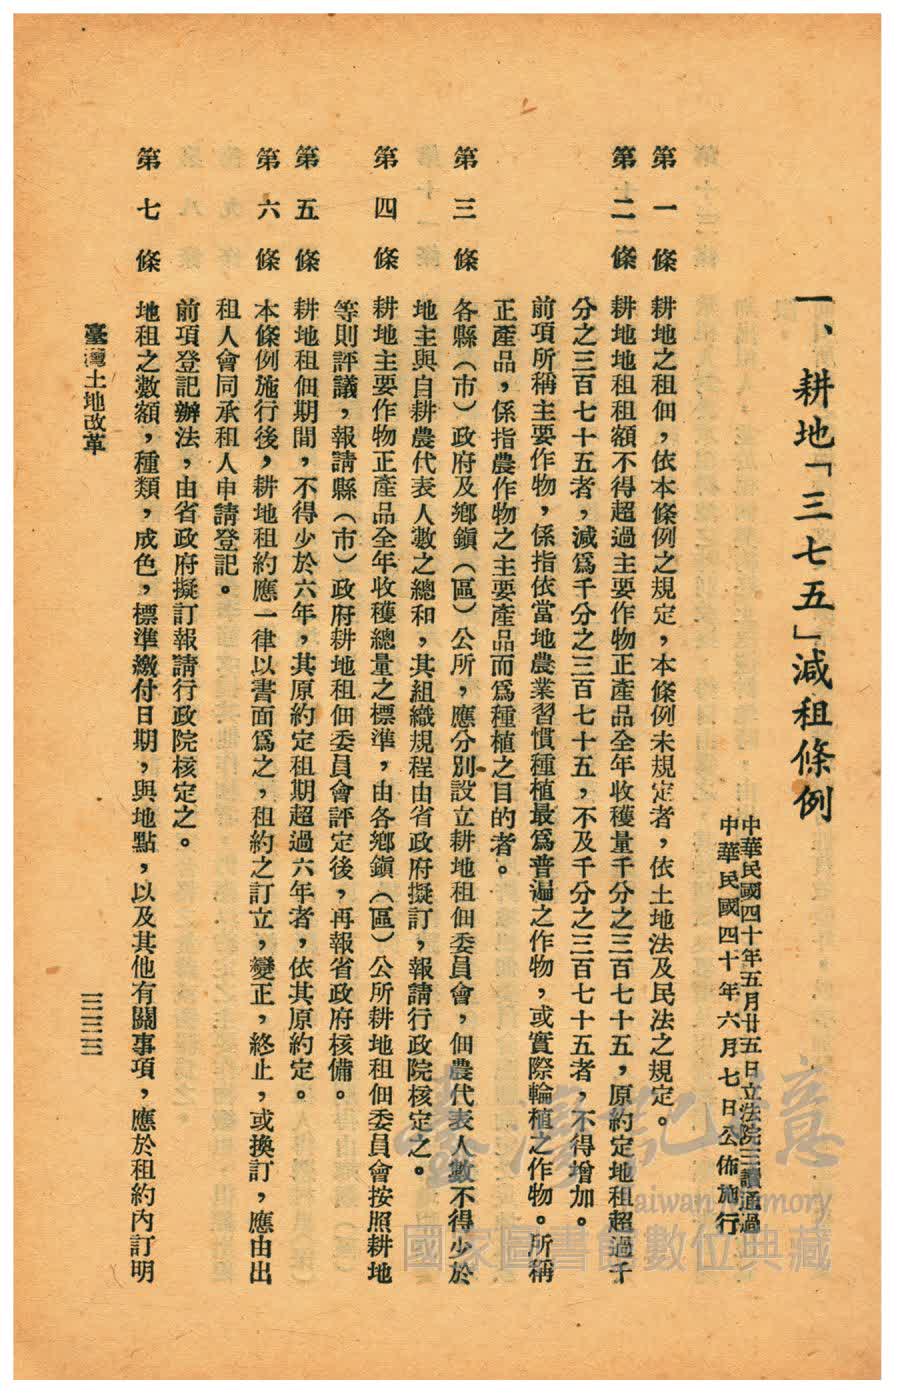 一、耕地「三七五」減租條例
中華民國四十年五月廿五日立法院三讀通過
中華民國四十年六月七日公佈施行
第一條 耕地之租佃，依本條例之規定，本條例未規定者，依土地法及民法之規定。
第二條 耕地地租租額不得超過主要作物正產品全年收穫量千分之三百七十五，原約定地租超過千
分之三百七十五者，減爲千分之三百七十五，不及千分之三百七十五者，不得增加。
前項所稱主要作物，係指依當地農業習慣種植最爲普遍之作物，或實際輪植之作物。所稱
正產品，係指農作物之主要產品而爲種植之目的者。
第三條 各縣（市）政府及鄉鎭（區）公所，應分別設立耕地租佃委員會，佃農代表人數不得少於
地主與自耕農代表人數之總和，其組織規程由省政府擬訂，報請行政院核定之。
第四條 耕地主要作物正產品全年收穫總量之標準，由各鄉鎭（區）公所耕地租佃委員會按照耕地
等則評議，報請縣（市）政府耕地租佃委員會評定後，再報省政府核備。
第五條 耕地租佃期間，不得少於六年，其原約定租期超過六年者，依其原約定。
第六條 本條例施行後，耕地租約應一律以書面爲之，租約之訂立，變正，終止，或換訂，應由出
租人會同承租人申請登記。
前項登記辦法，由省政府擬訂報請行政院核定之。
第七條 地租之數額，種類，成色，標準繳付日期，與地點，以及其他有關事項，應於租約內訂明
臺灣土地改革
三三三
臺灣記憶
Taiwan Memory
國家圖書館數位典藏